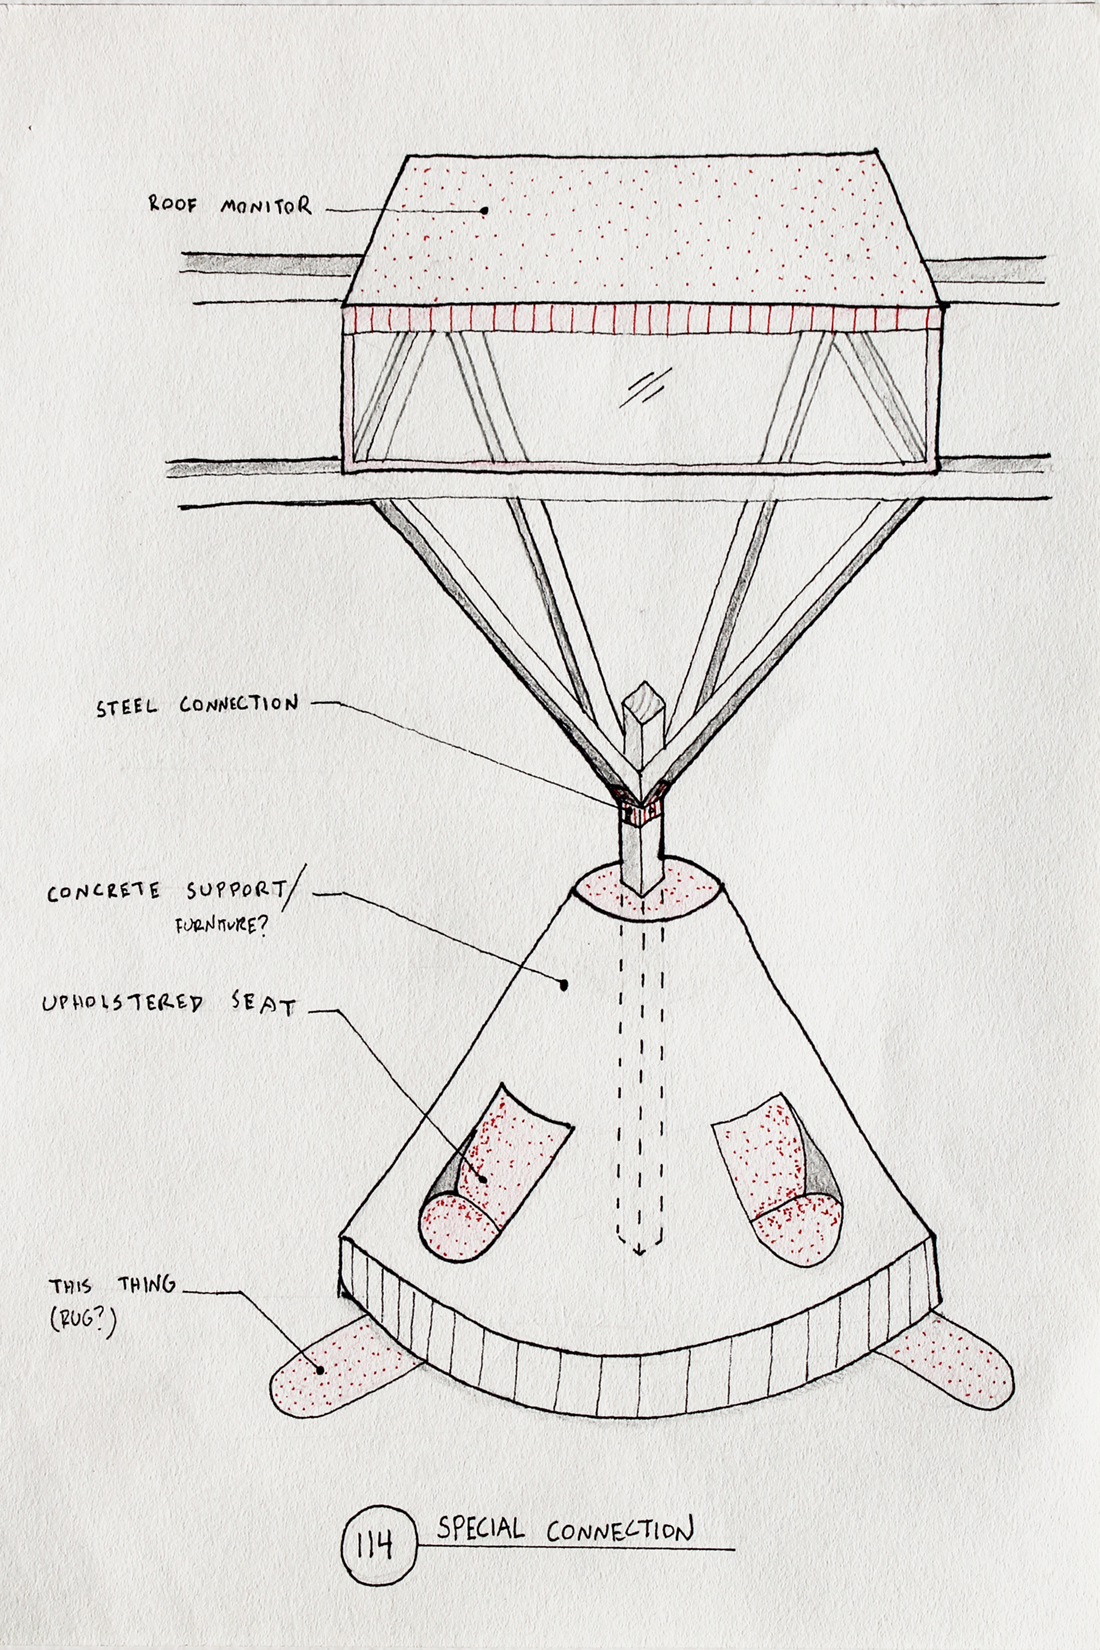 ROOF MONITOR
STEEL CONNECTION
CONCRETE SUPPORT/
FURNITURE?
UPHOLSTERED SEAT
THIS THING
(RUG?)
114 SPECIAL CONNECTION